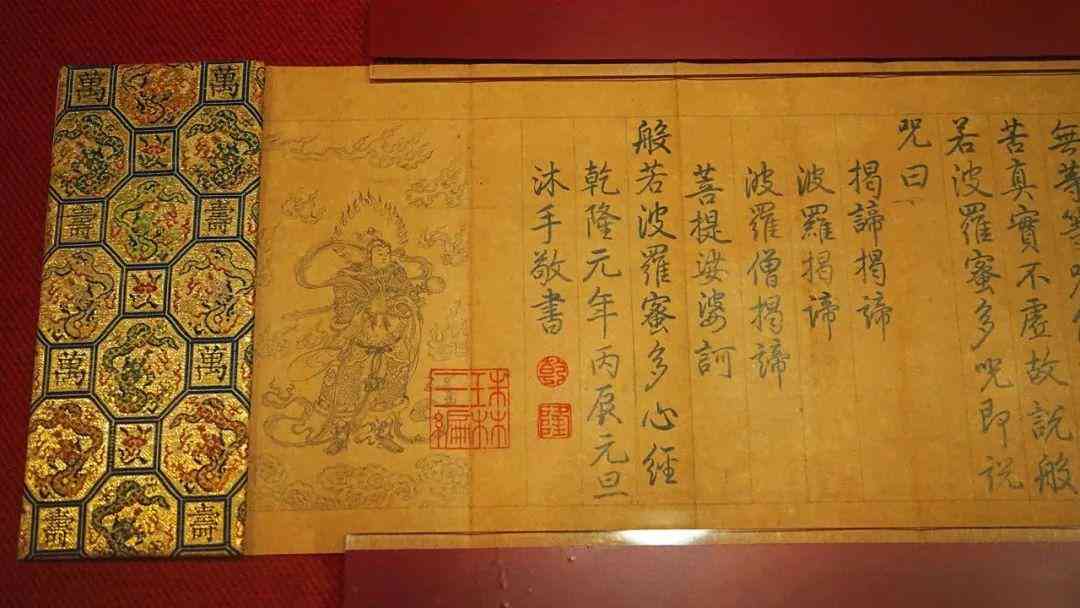 無等等
苦真實不虛故說般
若波羅蜜多呪即說
呪曰
揭諦揭諦
波羅揭諦
波羅僧揭諦
菩提娑婆訶
般若波羅蜜多心經
乾隆元年丙辰元旦
沐手敬書
乾
隆
珠林
三編
萬 萬
壽 壽
萬 萬
壽 壽